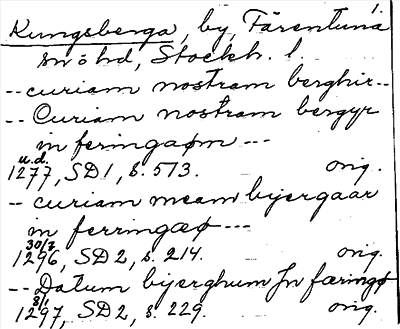 1
Kungsberga, by, Färentuna
snöhd, Stockh. l.
-- curiam nostram berghir --
-- Curiam nostram bergyr
in feringaøm ---
u.d.
1277, SD1, s. 573. orig.
-- curiam meam bijergaar
in ferringæø ---
30/7
1296, SD2, s. 214. orig.
-- Datum bijerghum Jn færingø
8/1
1297, SD2, s. 229. orig.